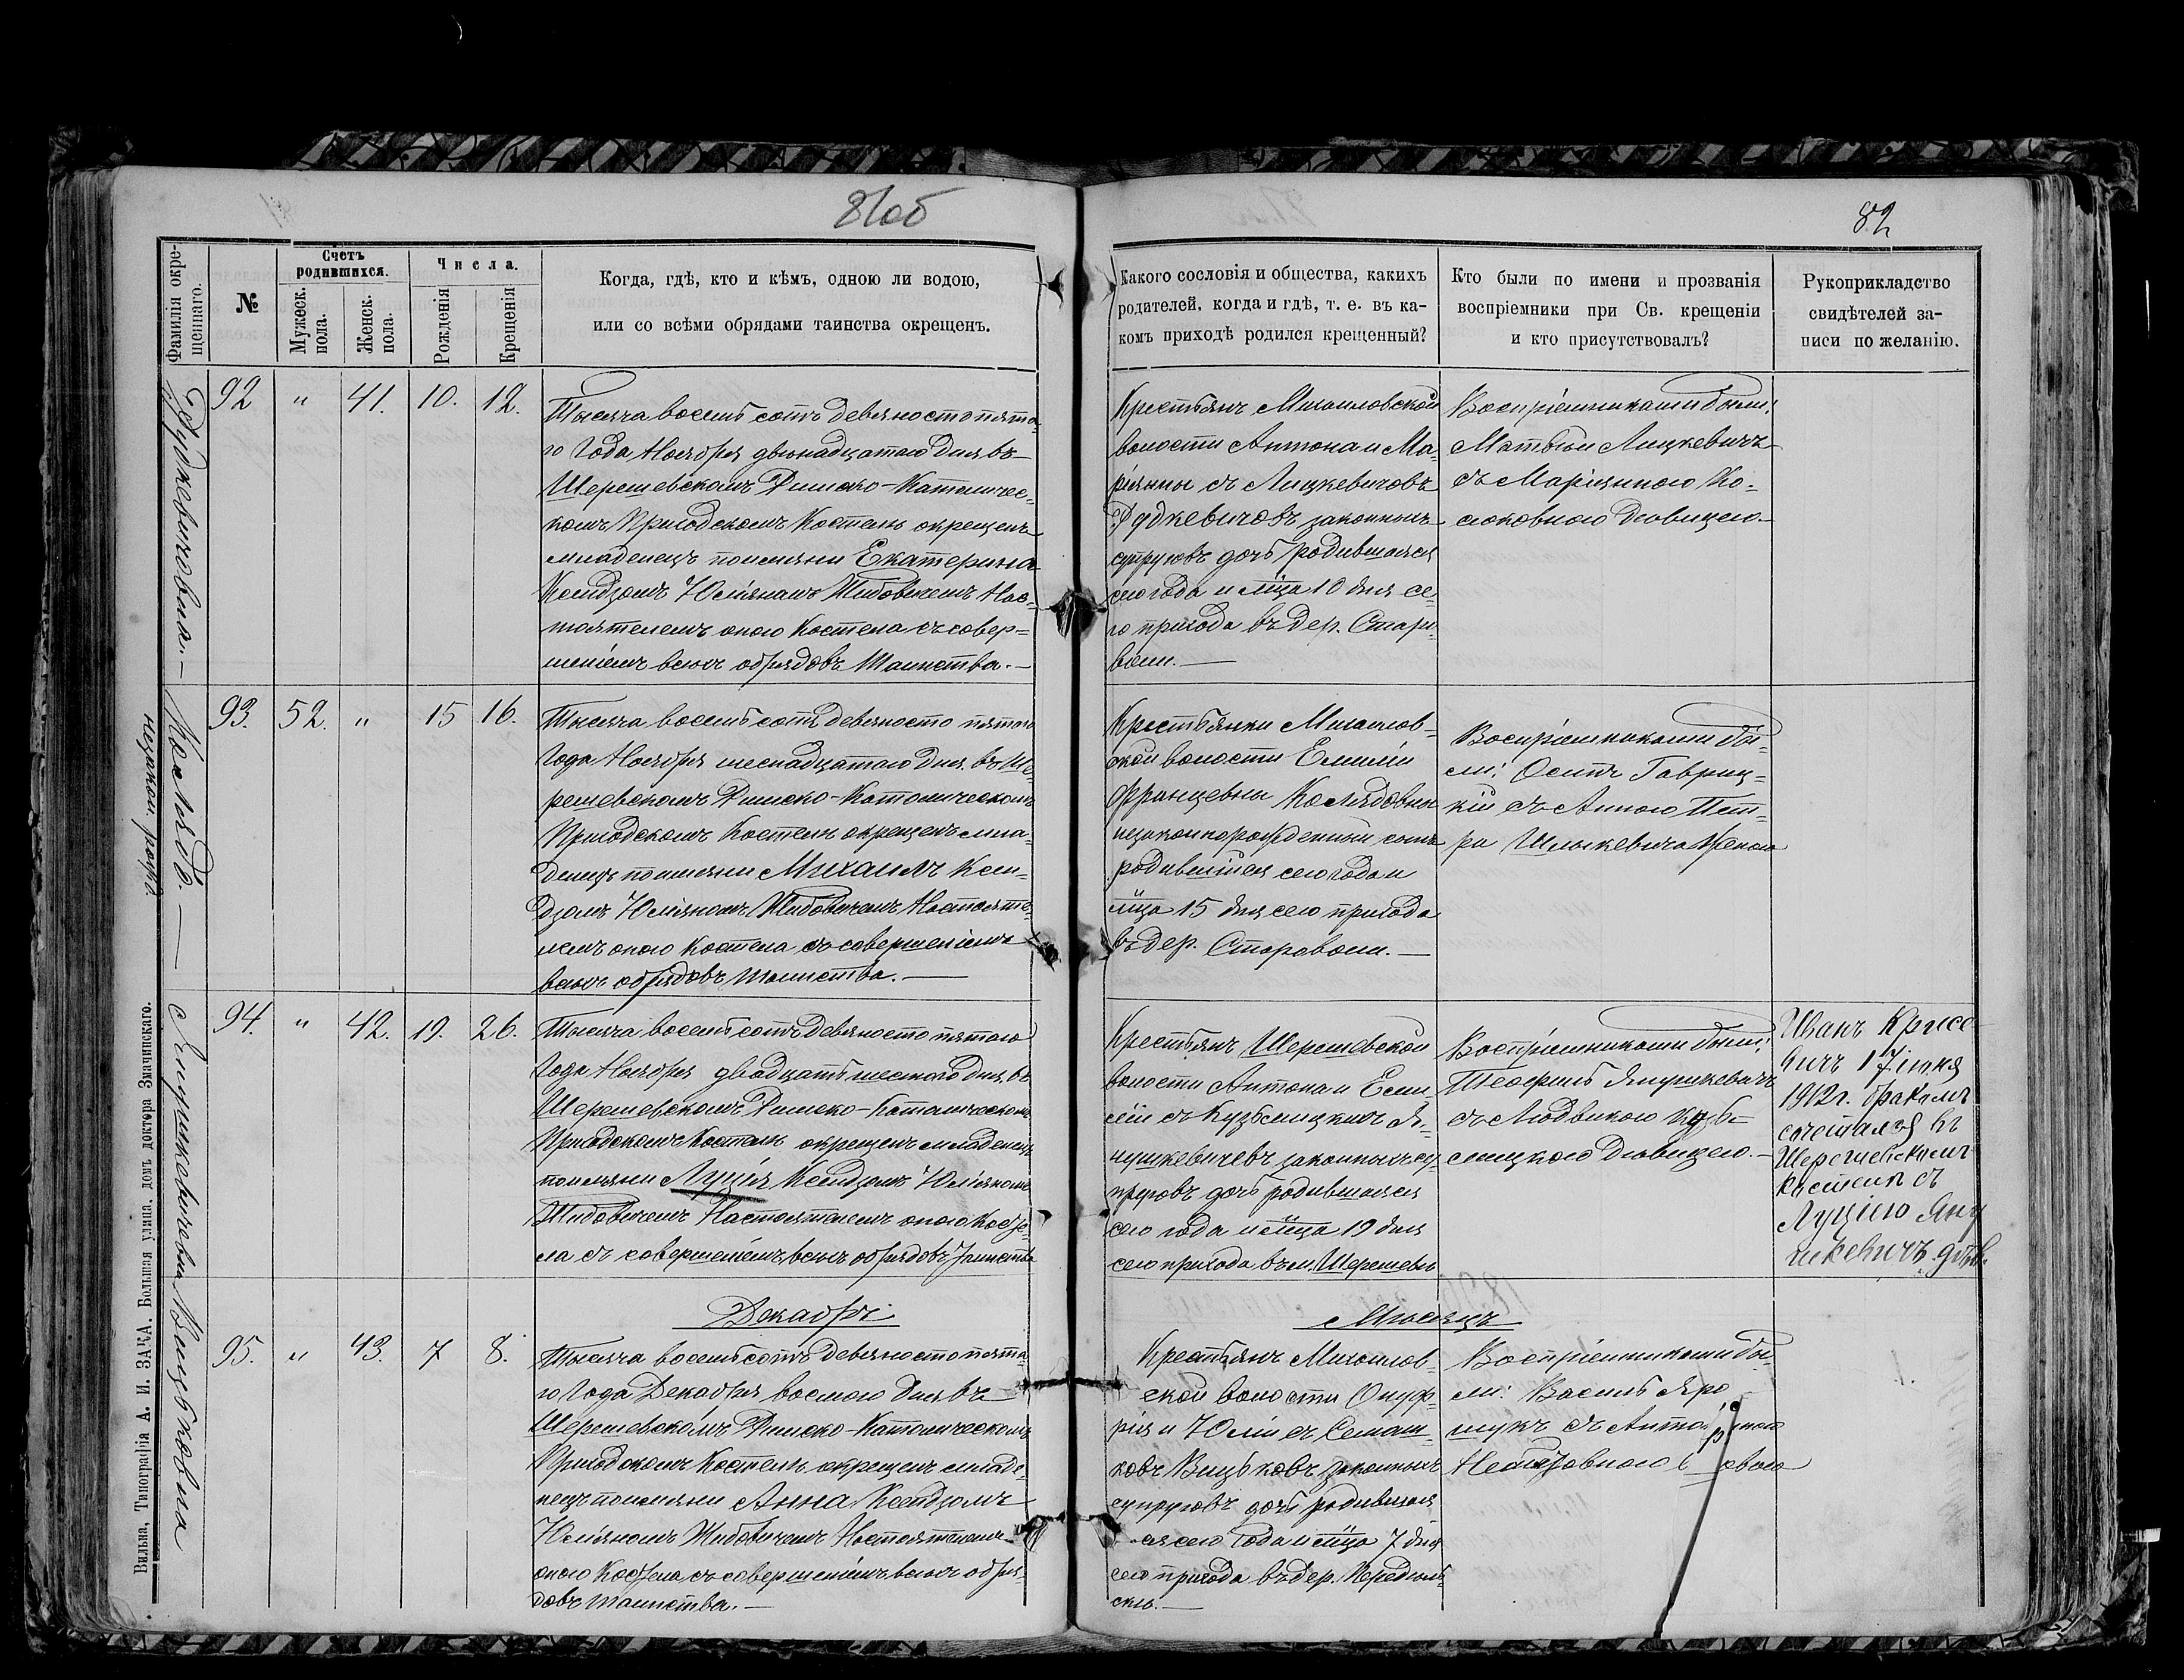 81об
82
Фамилія окре-
щеннаго.
№
Счетъ
родившихся.
Мужеск.
пола.
Женск.
пола.
Числа.
Рожденія
Крещенія
Когда, гдѣ, кто и кѣмъ, одною ли водою,
или со всѣми обрядами таинства окрещенъ.
Какого сословія и общества, какихъ
родителей, когда и гдѣ, т. е. въ ка-
комъ приходѣ родился крещенный?
Кто были по имени и прозванія
воспріемники при Св. крещеніи
и кто присутствовалъ?
Рукоприкладство
свидѣтелей за-
писи по желанію.
Рудкевичевна.—
92 " 41. 10. 12.
Тысяча восемь сотъ девяносто пята-
го Года Ноября двѣнадцатаго Дня въ
Шерешевскомъ Римско-Католичес-
комъ Приходскомъ Костелѣ окрещенъ
младенецъ по имени Екатерина
Ксендзомъ Юліяномъ Жидовичемъ Нас-
тоятелемъ оного Костела съ совер-
шеніемъ всѣхъ обрядовъ Таинства.—
Крестьянъ Михаиловской
волости Антона и Ма-
ріянны съ Лицкевичовъ
Рудкевичовъ законныхъ
супруговъ дочь родившаяся
сего года и мѣца 10 дня се-
го прихода въ дер. Стари-
воли.—
Воспріемниками были:
Матвѣй Лицкевичъ
съ Маріянною Ко-
сюковною Дѣвицею.—
Колядо.—
незакон. рожд.
93. 52. " 15 16.
Тысяча восемь сотъ девяносто пятого
Года Ноября шеснадцатаго Дня въ Ше-
решевскомъ Римско-Католическомъ
Приходскомъ Костелѣ окрещенъ мла-
денецъ по имени Михаилъ Ксен-
дзомъ Юліяномъ Жидовичемъ Настояте-
лемъ оного Костела съ совершеніемъ
всѣхъ обрядовъ Таинства.—
Крестьянки Михаилов-
ской волости Емиліи
Францевны Колядовны
незаконнорожденный сынъ
родившійся сего года и
мѣца 15 дня сего прихода
въ дер. Староволи.—
Воспріемниками бы-
ли: Осипъ Гавриц-
кій съ Анною Пет-
ра Шлыкевича Женою
Янушкевичевна
94. " 42. 19. 26.
Тысяча восемь сотъ девяносто пятого
Года Ноября двадцать шестого дня въ
Шерешевскомъ Римско-Католическомъ
Приходскомъ Костелѣ окрещенъ младенецъ
по имени Луція Ксендзомъ Юліяномъ
Жидовичемъ Настоятелемъ оного Косте-
ла съ совершеніемъ всѣхъ обрядовъ Таинства
Крестьянъ Шерешевской
волости Антона и Еми-
ліи съ Кузьмицкихъ Я-
нушкевичевъ законныхъ су-
пруговъ дочь родившаяся
сего года и мѣца 19 дня
сего прихода въ м. Шерешевѣ
Воспріемниками были:
Теофиль Янушкевичъ
съ Людвикою Кузь-
мицкою Дѣвицею.—
Иванъ Крисе-
вичъ 17 іюня
1912 г. бракомъ
сочетался въ
Шерешевскомъ
костелѣ съ
Луціею Яну
шкевичъ дѣв.
Декабрь
Мѣсяцъ
Вицьковна
95. " 43. 7 8.
Тысяча восемь сотъ девяносто пята-
го Года Декабря восмого Дня въ
Шерешевскомъ Римско-Католическомъ
Приходскомъ Костелѣ окрещенъ младе-
нецъ по имени Анна Ксендзомъ
Юліяномъ Жидовичемъ Настоятелемъ
оного Костела съ совершеніемъ всѣхъ обря-
довъ Таинства.—
Крестьянъ Михаилов-
ской волости Онуф-
рія и Юліи съ Семаш-
ковъ Вицьковъ законныхъ
супруговъ дочь родившая-
ся сего Года и мѣца 7 дня
сего прихода въ дер.
Воспріемниками бы-
ли: Василь Яро-
шукъ съ
Вильна, Типографія А. И. ЗАКА. Большая улица, домъ доктора Змачинскаго.